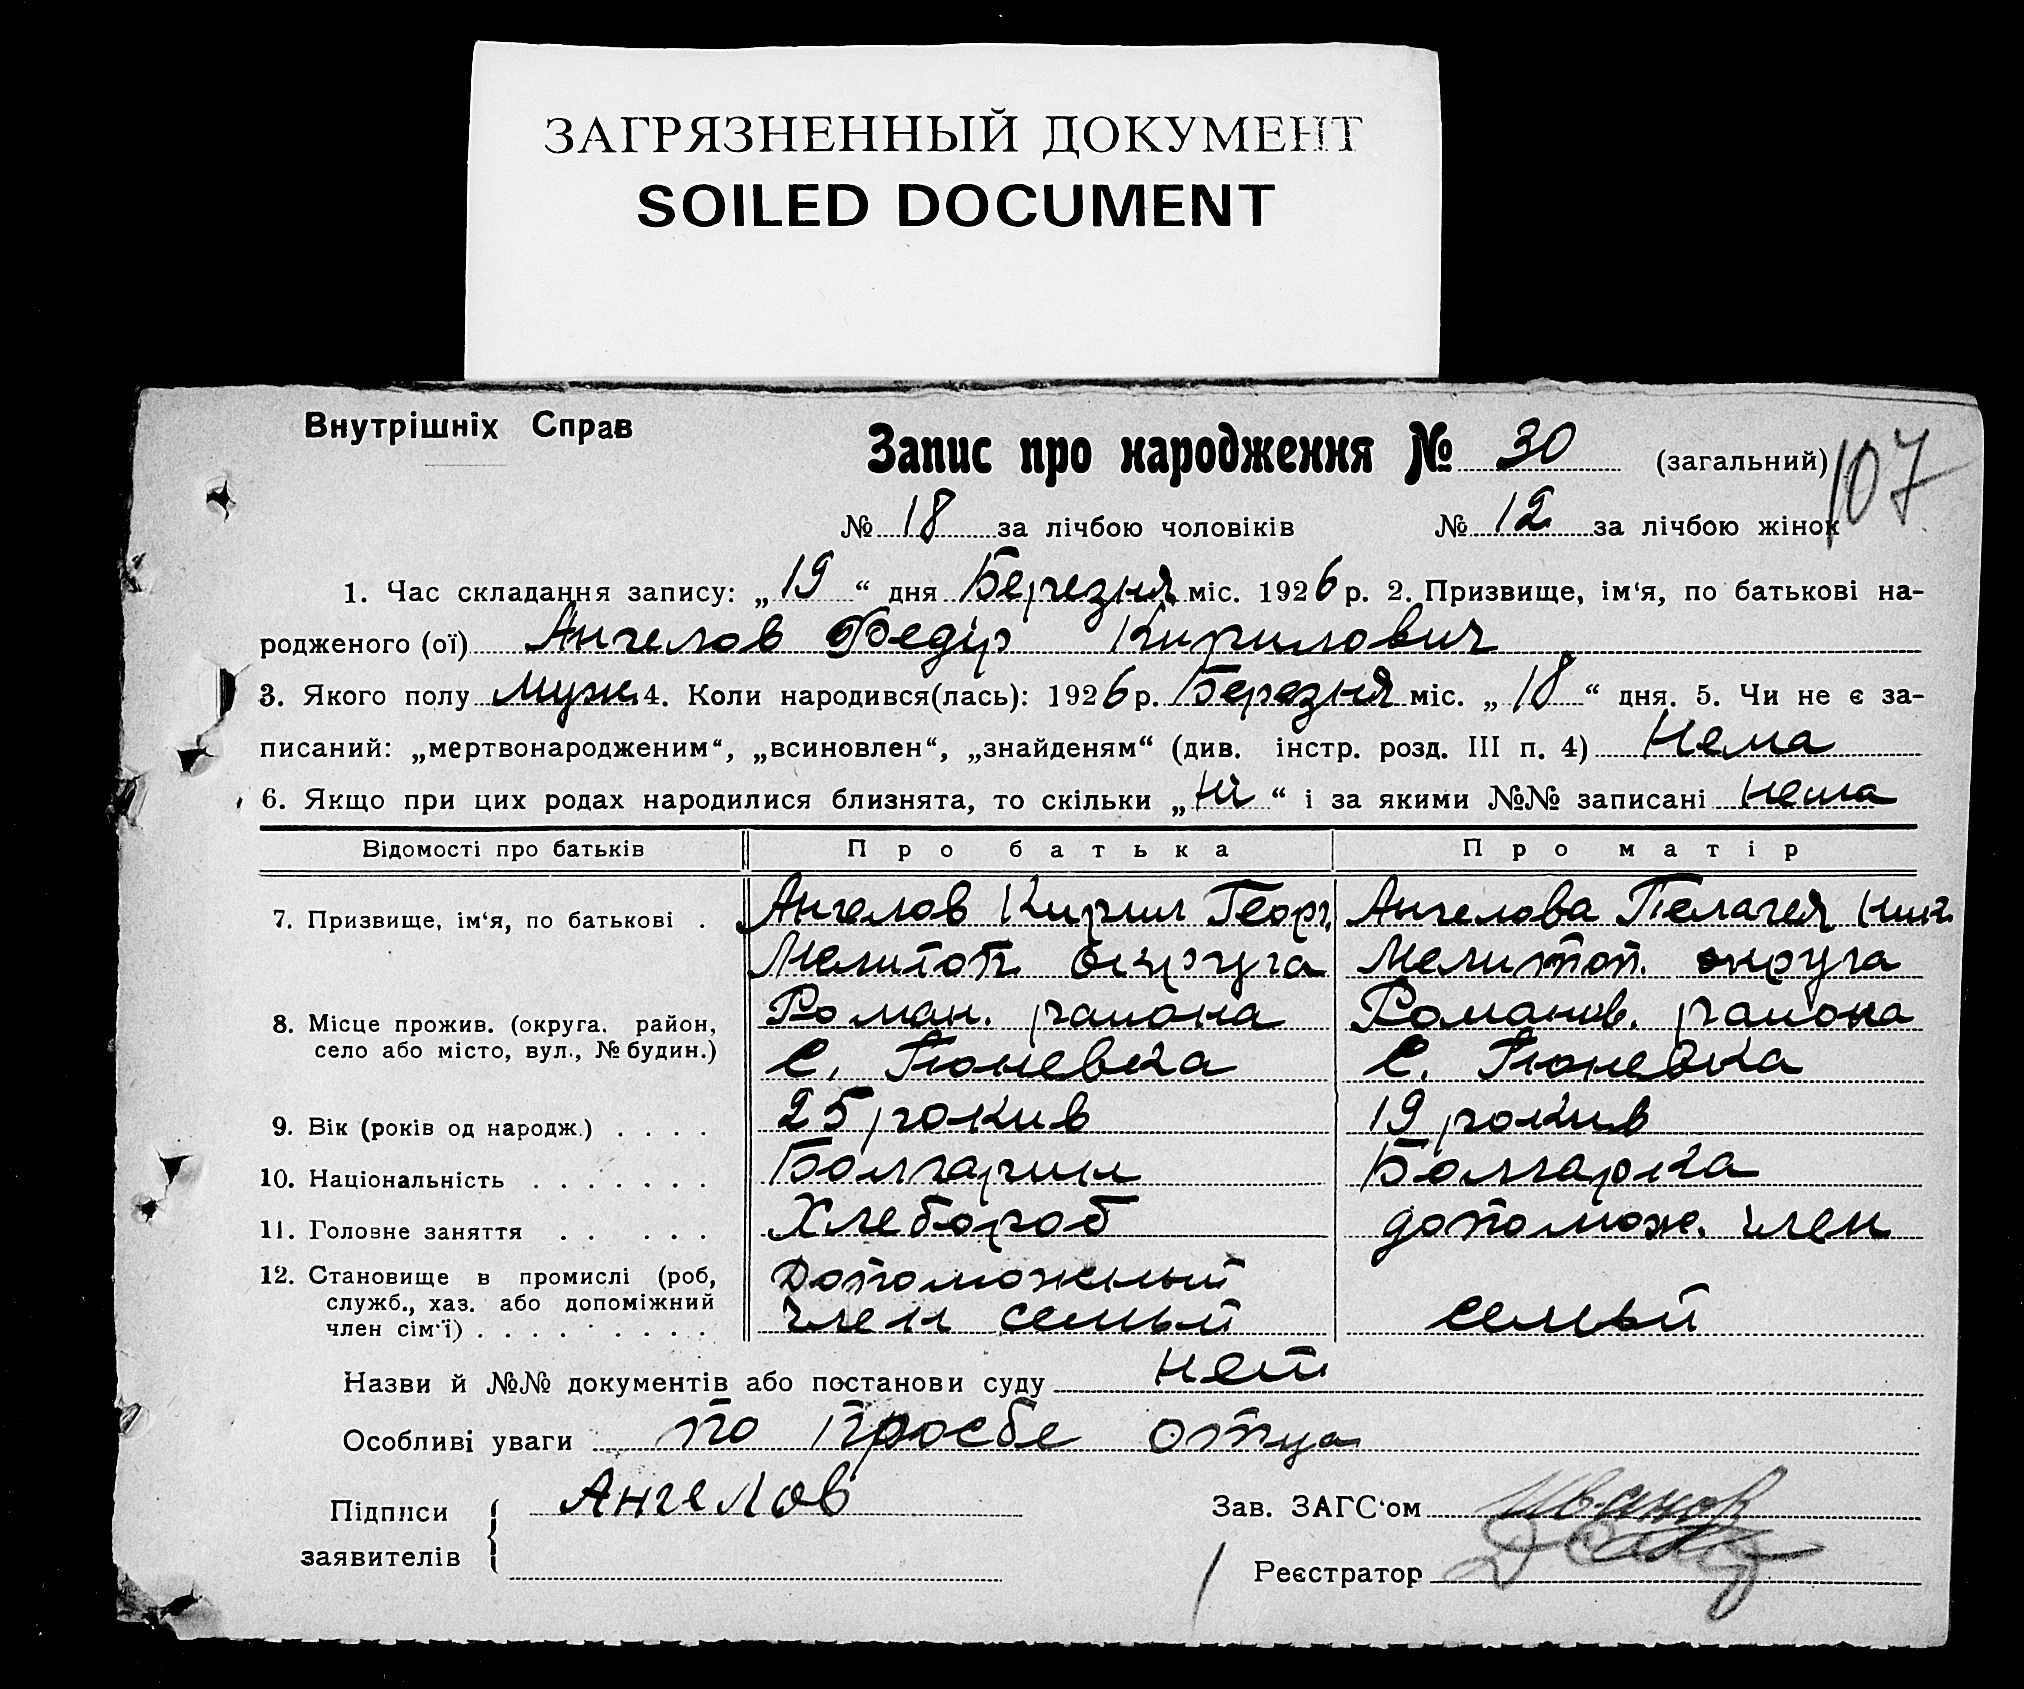 ЗАГРЯЗНЕННЫЙ ДОКУМЕНТ
SOILED DOCUMENT
Внутрішніх Справ
Запис про народження № 30 (загальний) 107
№ 18 за лічбою чоловіків № 12 за лічбою жінок
1. Час складання запису: „19“ дня Березня міс. 1926 р. 2. Призвище, ім‘я, по батькові на-
родженого (ої) Ангелов Федір Кирилович
3. Якого полу муж. 4. Коли народився(лась): 1926 р. Березня міс. „18“ дня. 5. Чи не є за-
писаний: „мертвонародженим“, „всиновлен“, „знайденям“ (див. інстр. розд. III п. 4) Нема
6. Якщо при цих родах народилися близнята, то скільки „Ні“ і за якими №№ записані нема
Відомості про батьків Про батька Про матір
7. Призвище, ім‘я, по батькові . Ангелов Кирил Георг. Ангелова Пелагея Ник.
Мелитоп. округа Мелитоп. округа
8. Місце прожив. (округа, район, Роман. района Романов. района
село або місто, вул., № будин.) С. Тюневка С. Тюневка
9. Вік (років од народж.) . . . . 25 рокив 19 рокив
10. Національність . . . . . . . Болгарин Болгарка
11. Головне заняття . . . . . Хлебороб допомож. член
12. Становище в промислі (роб, Допоможный
служб., хаз. або допоміжний член семьи семьи
член сім‘ї) . . . . . . . . .
Назви й №№ документів або постанови суду нет
Особливі уваги по просбе отца
Підписи Ангелов Зав. ЗАГС‘ом Иванов
заявителів Реєстратор